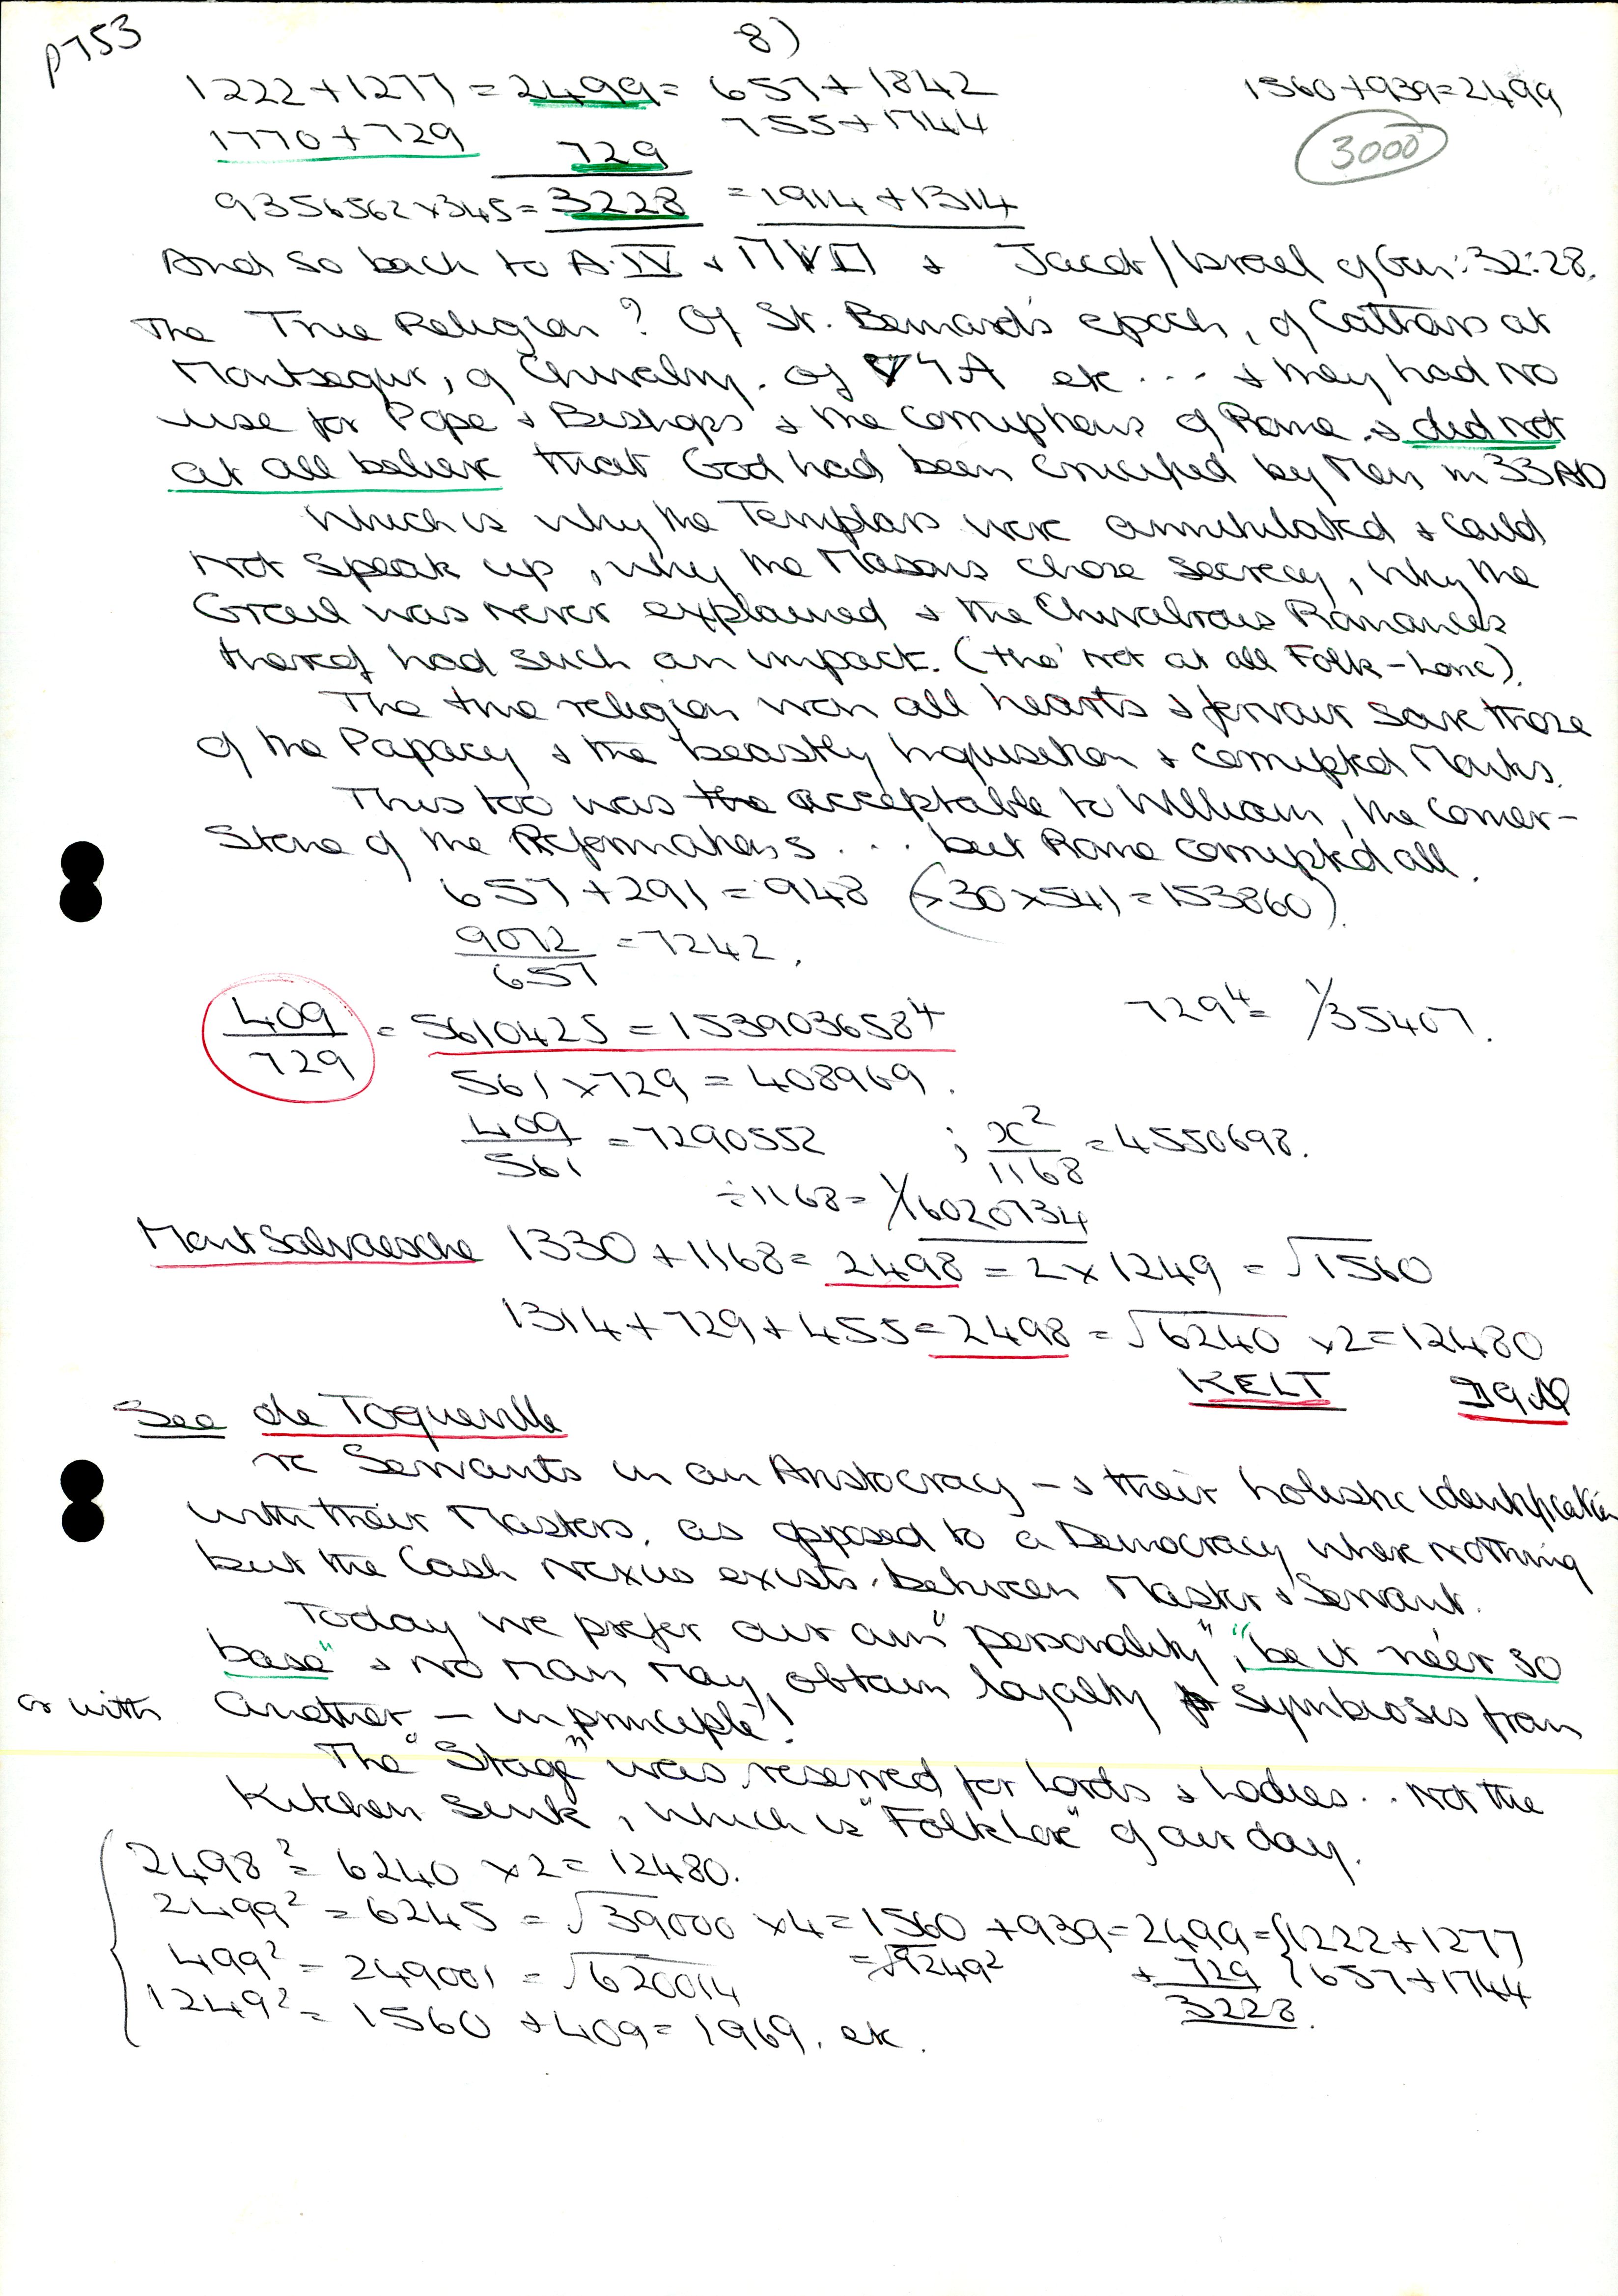 p753
8)
1222 + 1277 = 2499 = 657 + 1842
1560 + 939 = 2499
1770 + 729
755 + 1744
729
3000
9356562 x 345 = 3228 = 1914 + 1314
And so back to A.IV + & Jacob / Israel of Gen: 32:28.
The True Religion? Of St. Bernard's epoch, of Cathars at
Montsegur, of Chivalry. Of etc ... & they had no
use for Pope & Bishops & the corruptions of Rome. & did not
at all believe that God had been crucified by Men in 33AD
Which is why the Templars were annihilated & could
not speak up, why the Masons chose secrecy, why the
Grail was never explained & the Chivalrous Romances
thereof had such an impact. (tho' not at all Folk-Lore).
The true religion won all hearts & fervour save those
of the Papacy & the beastly Inquisition & corrupted Monks.
This too was the acceptable to William, the Corner-
Stone of the Reformations ... but Rome corrupted all.
657 + 291 = 948 (x 30 x 541 = 153860).
9072/657 = 7242.
409/729 = 5610425 = 1539036584
729⁴ = 1/35407.
561 x 729 = 408969.
409/561 = 7290552 ; x²/1168 = 4550698.
÷ 1168 = 1/16020734
Mont Salvaesche 1330 + 1168 = 2498 = 2 x 1249 = √1560
1314 + 729 + 455 = 2498 = √6240 x 2 = 12480
KELT
See de Toqueville
re Servants in an Aristocracy - & their holistic identification
with their Masters, as opposed to a Democracy where nothing
but the Cash Nexus exists between Master & Servant.
Today we prefer our own "personality", "be it ne'er so
base" & no man may obtain loyalty symbiosis from
or with another - in principle!
The "Stage" was reserved for Lords & Ladies.. not the
Kitchen Sink, which is "Folk Lore" of our day.
2498² = 6240 x 2 = 12480.
2499² = 6245 = √39000 x 4 = 1560 + 939 = 2499 = {1222 + 1277
499² = 249001 = √620014 = √1249² + 729 {657 + 1744
1249² = 1560 + 409 = 1969. etc. 3228.